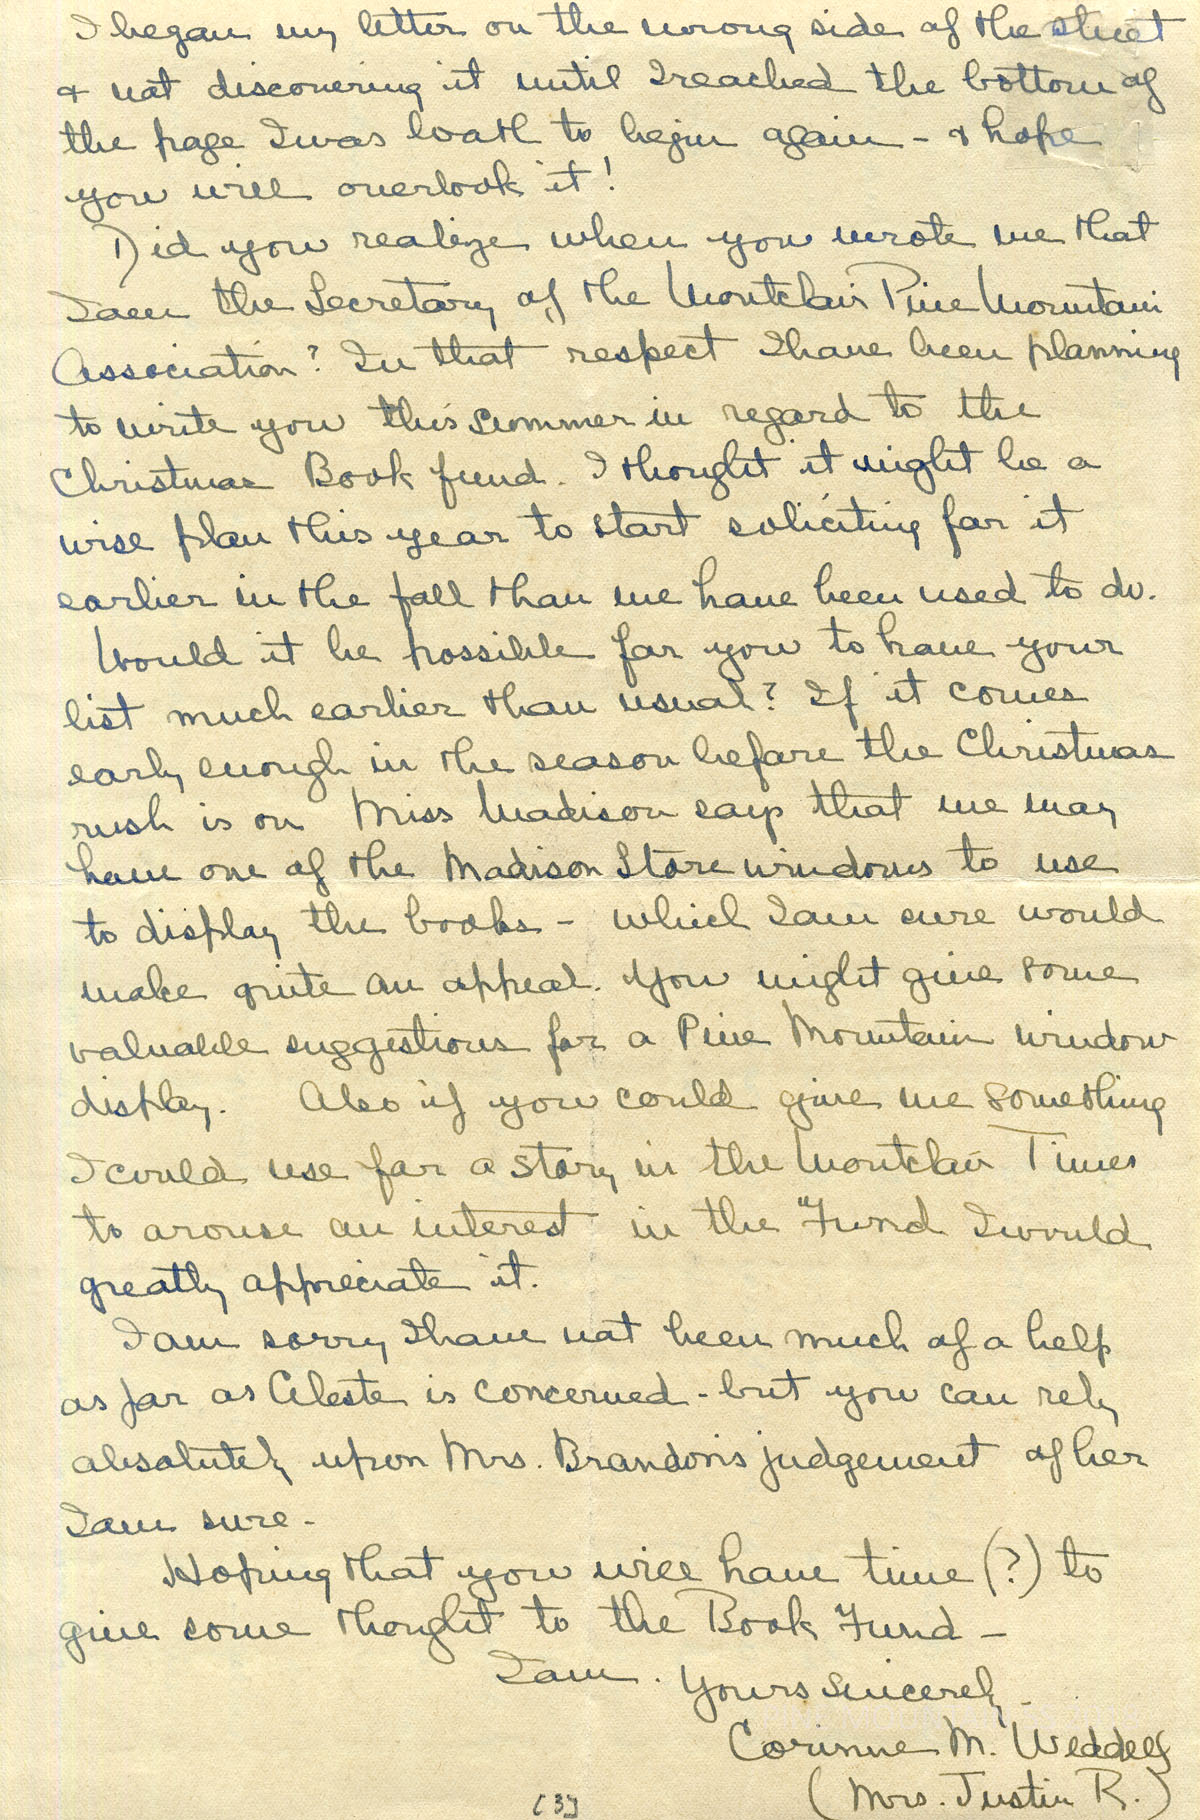 I began my letter on the wrong side of the sheet
& not discovering it until I reached the bottom of
the page I was loath to begin again - & hope
you will overlook it!
Did you realize when you wrote me that
I am the Secretary of the Montclair Pine Mountain
Association? In that respect I have been planning
to write you this summer in regard to the
Christmas Book fund. I thought it might be a
wise plan this year to start soliciting for it
earlier in the fall than we have been used to do.
Would it be possible for you to have your
list much earlier than usual? If it comes
early enough in the season before the Christmas
rush is on Miss Madison says that we may
have one of the Madison Store windows to use
to display the books - which I am sure would
make quite an appeal. You might give some
valuable suggestions for a Pine Mountain window
display. Also if you could give me something
I could use for a story in the Montclair Times
to arouse an interest in the "Fund I would
greatly appreciate it.
I am sorry I have not been much of a help
as far as Celeste is concerned - but you can rely
absolutely upon Mrs. Brandon's judgement of her
I am sure -
Hoping that you will have time (?) to
give some thought to the Book Fund -
I am. Yours sincerely -
Corinne M. Weddell
(Mrs. Justin R.)
[3]